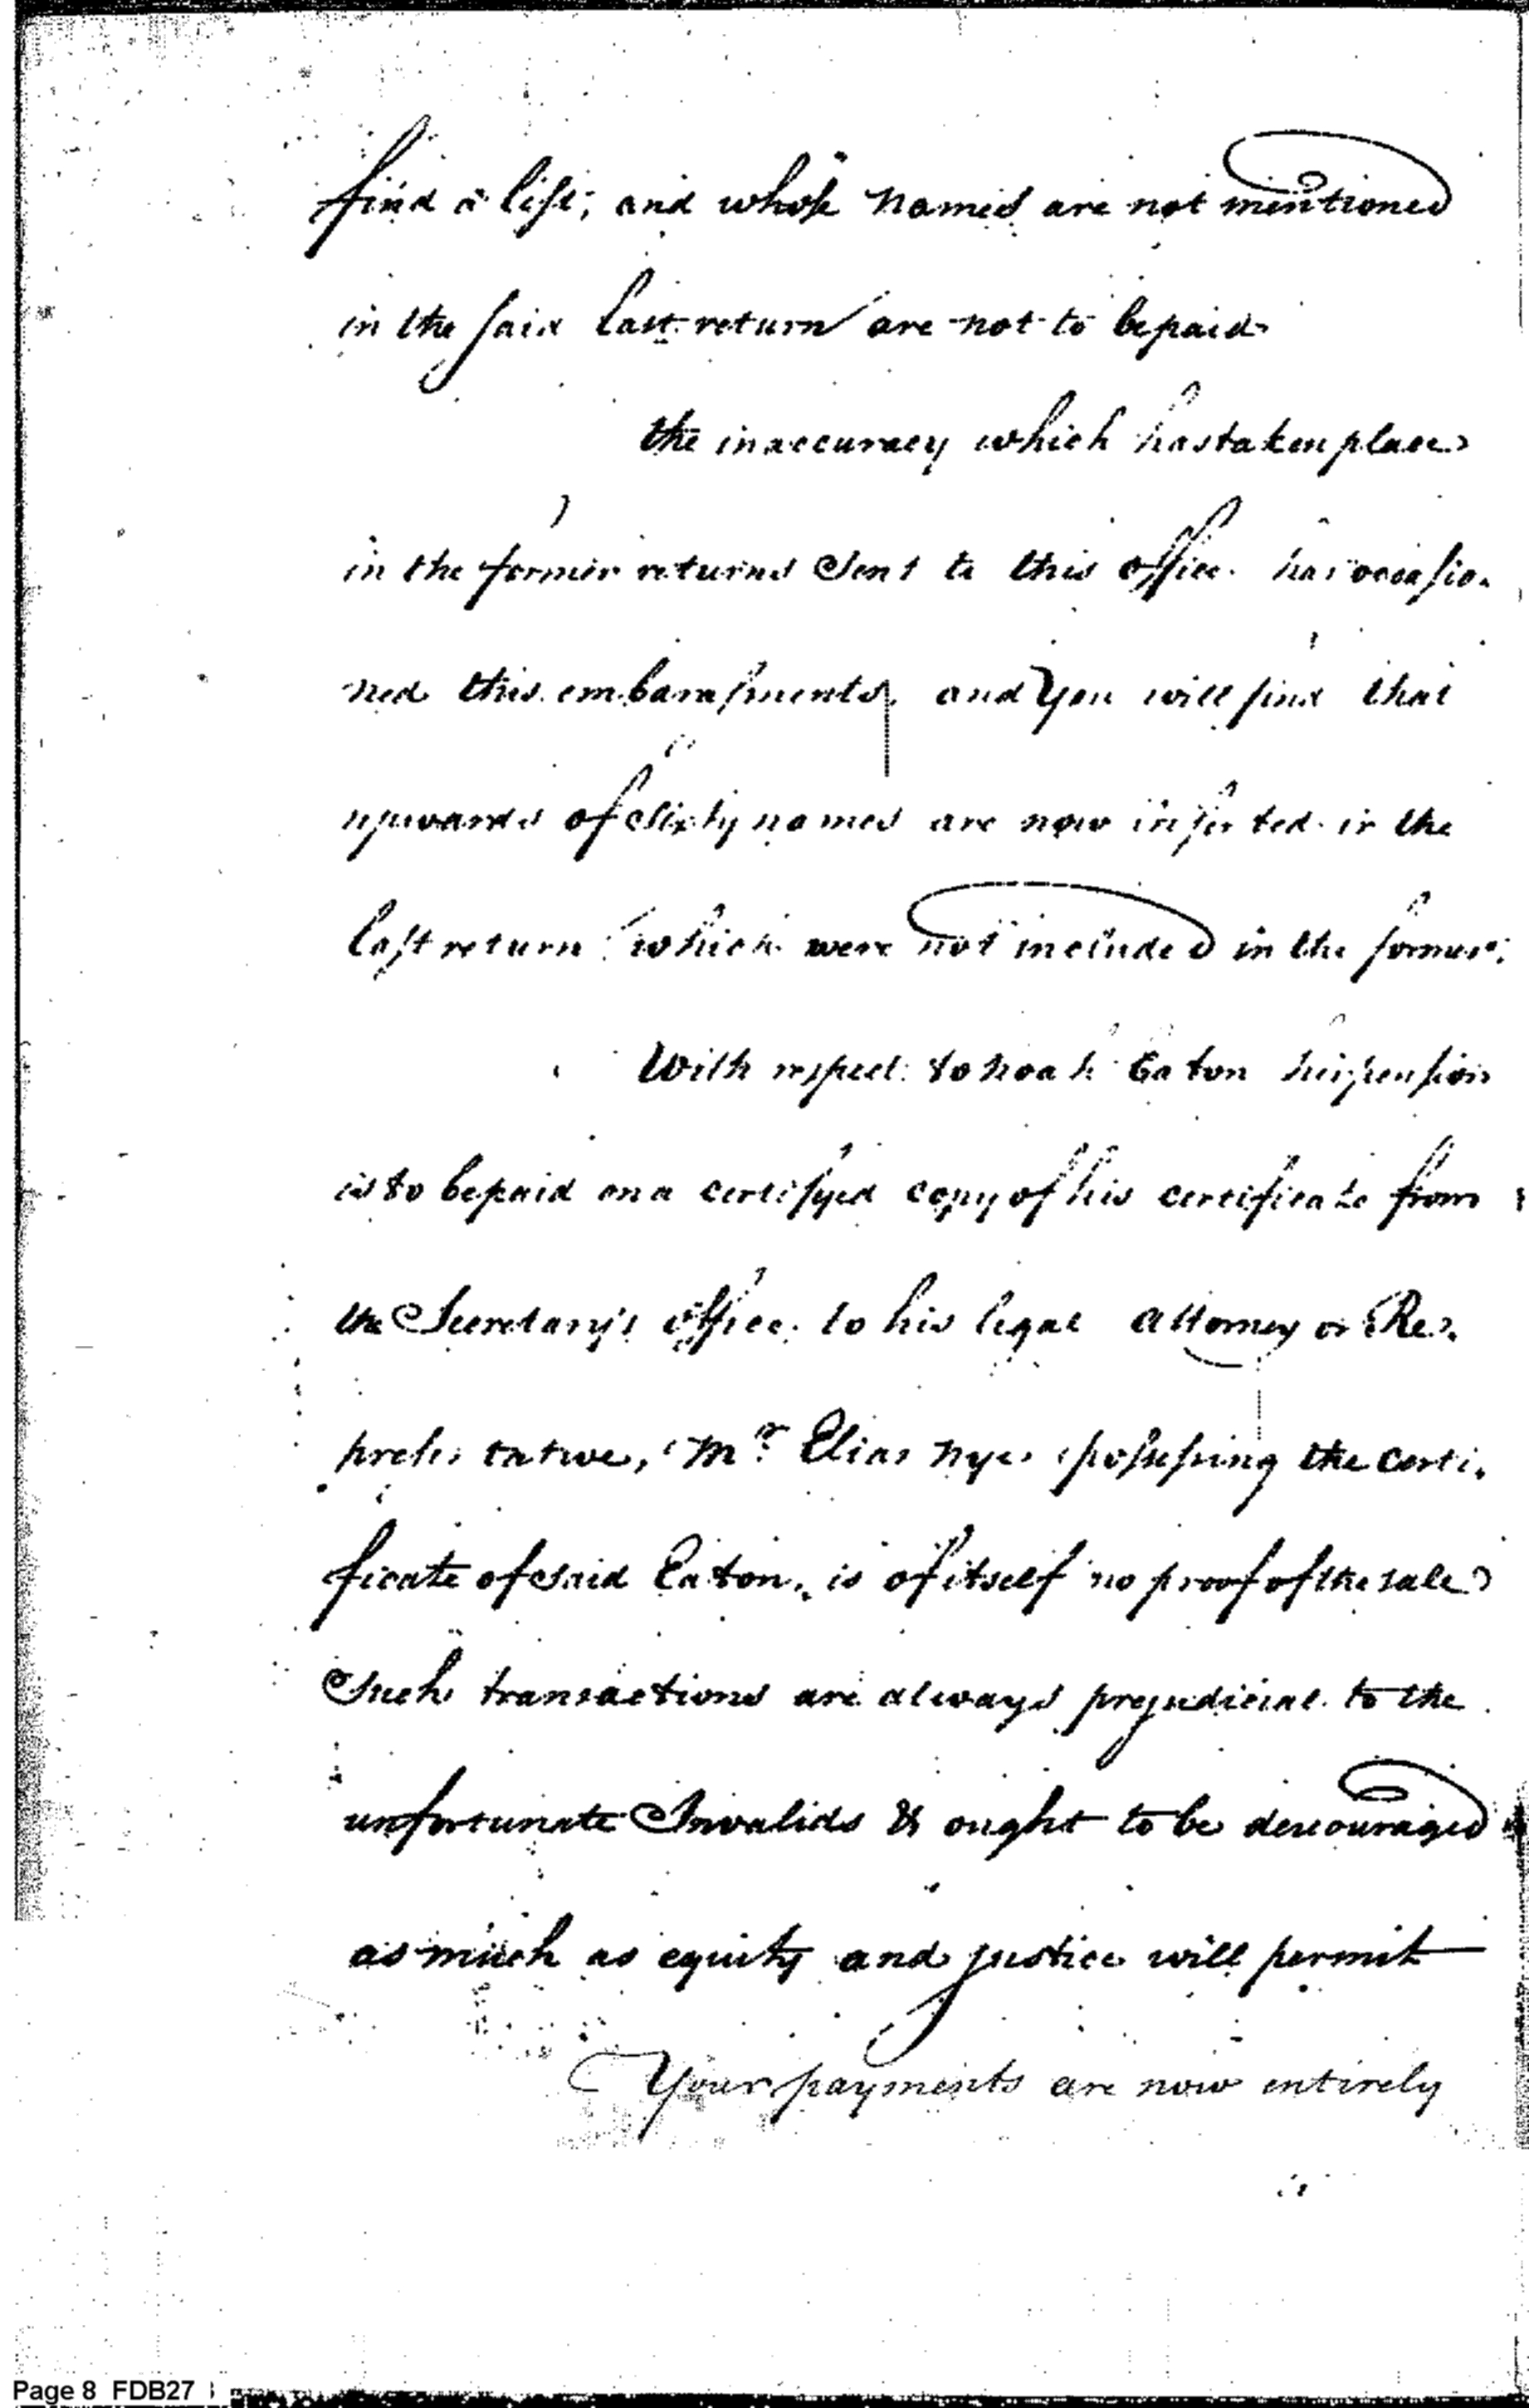 find a list, and whose names are not mentioned
in the said last return are not to be paid
the inaccuracy which has taken place
in the former returns sent to this office has occasio-
ned this embarassments, and You will find that
upwards of sixty names are now inserted in the
last return which were not included in the former.
With respect to Noah Eaton his pension
is to be paid on a certifyed copy of his certificate from
the Secretary's office to his legal attorney or Re-
presentative, Mr. Elias Nye possessing the certi-
ficate of said Eaton, is of itself no proof of the sale
Such transactions are always prejudicial to the
unfortunate Invalids & ought to be descouraged
as much as equity and justice will permit
Your payments are now entirely
Page 8 FDB27